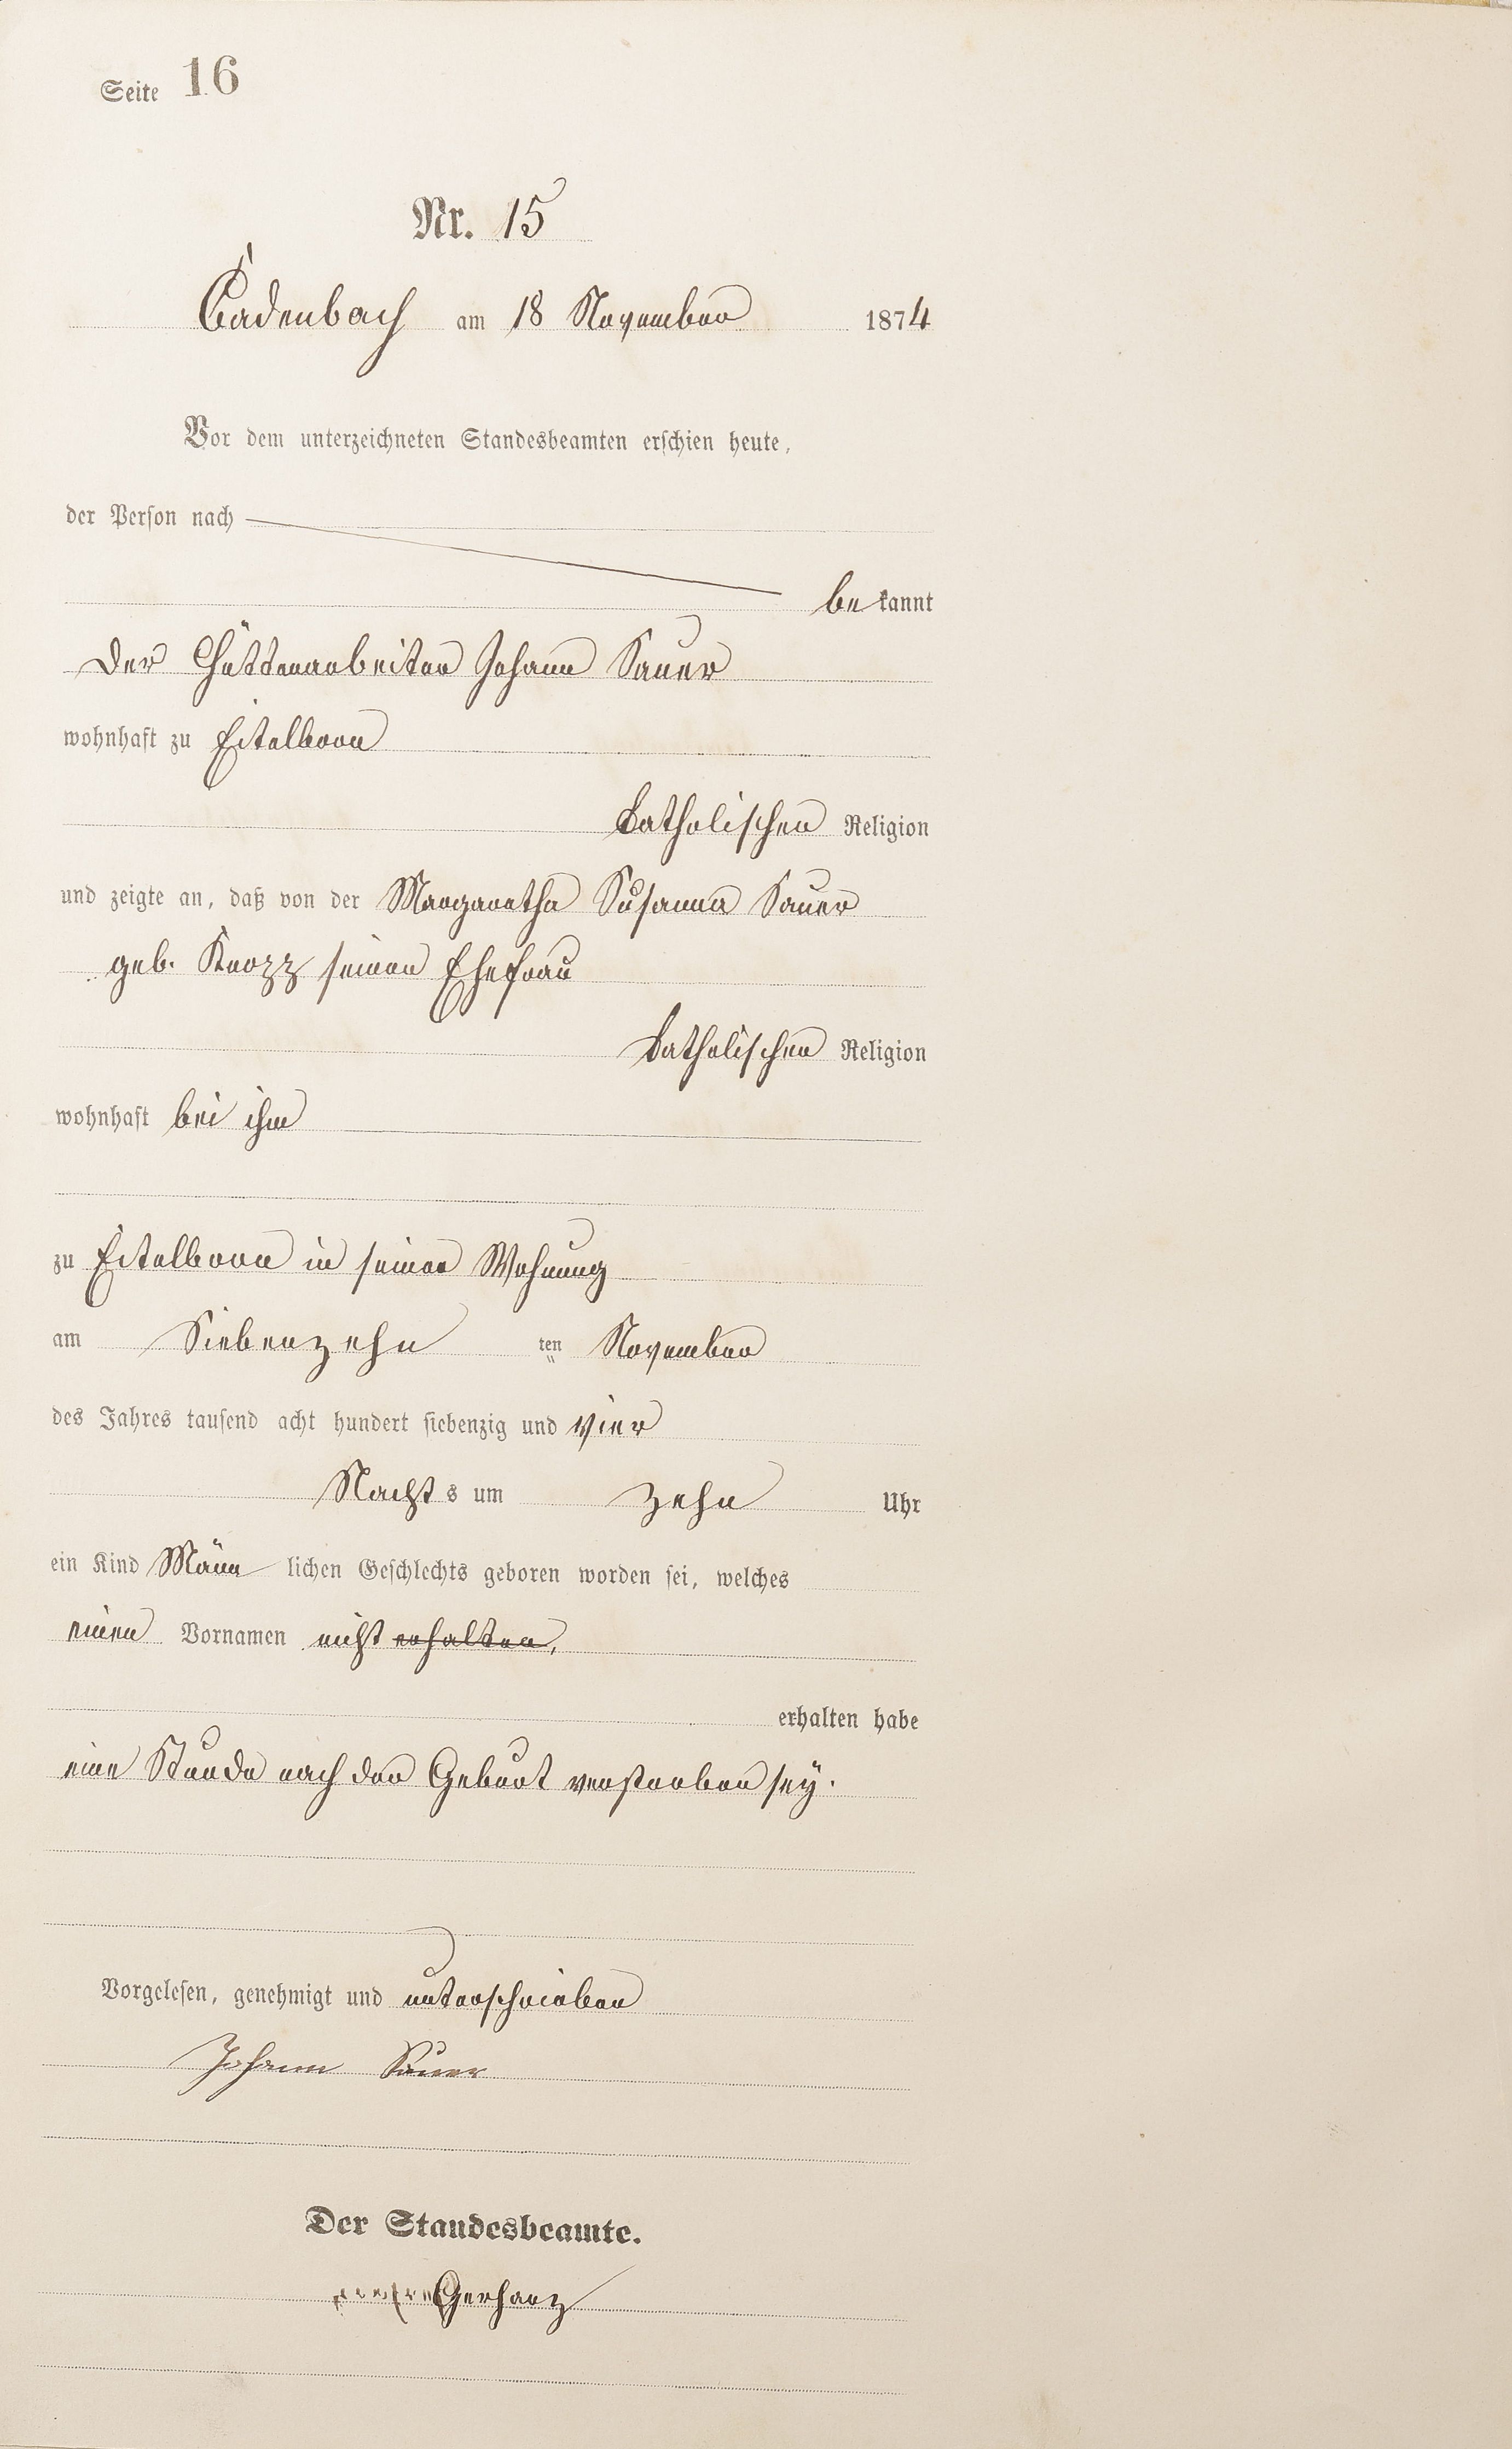 Seite 16
Nr. 15
Cadenbach am 18 November 1874
Vor dem unterzeichneten Standesbeamten erschien heute,
der Person nach
bekannt
der Hüttenarbeiter Johann Sauer
wohnhaft zu Eitelborn
katholischer Religion
und zeigte an, daß von der Margaretha Susanna Sauer
geb. Knopp seiner Ehefrau
katholischer Religion
wohnhaft bei ihm
zu Eitelborn in seiner Wohnung
am Siebenzehn ten November
des Jahres tausend acht hundert siebenzig und vier
Nachts um zehn Uhr
ein Kind Männlichen Geschlechts geboren worden sei, welches
einen Vornamen nicht erhalten,
erhalten habe
eine Stunde nach der Geburt verstorben sey.
Vorgelesen, genehmigt und unterschrieben
Johann Sauer
Der Standesbeamte.
Gerharz